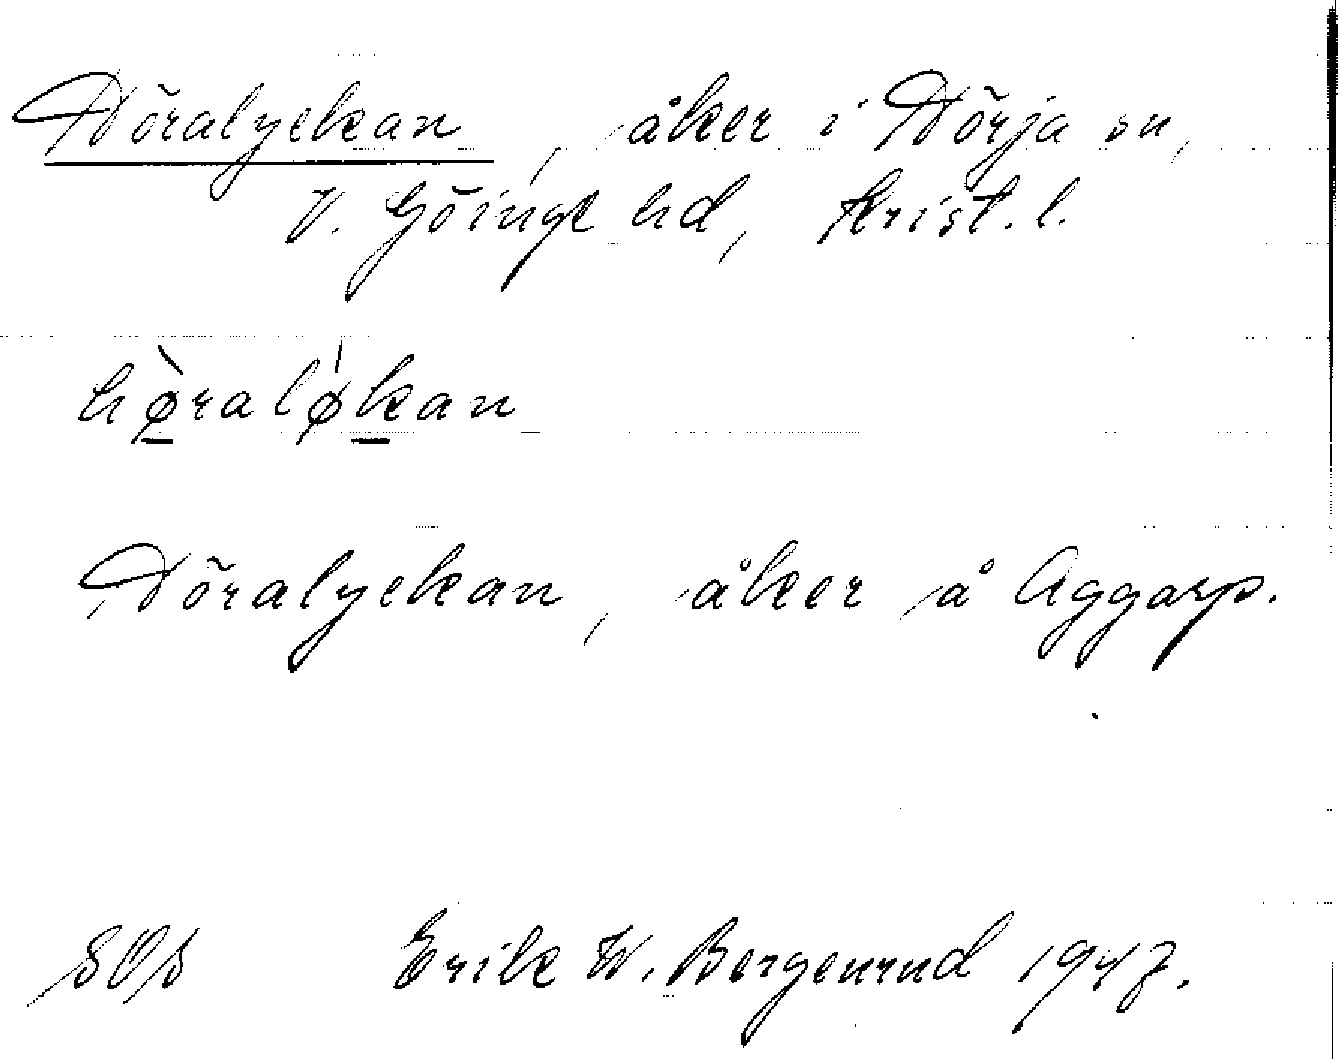 Höralyckan, åker i Hörja sn,
V. Göinge hd, Krist. l.
hø̀raløkan
Höralyckan, åker å Aggarp.
Erik W. Bergenrud 1947.